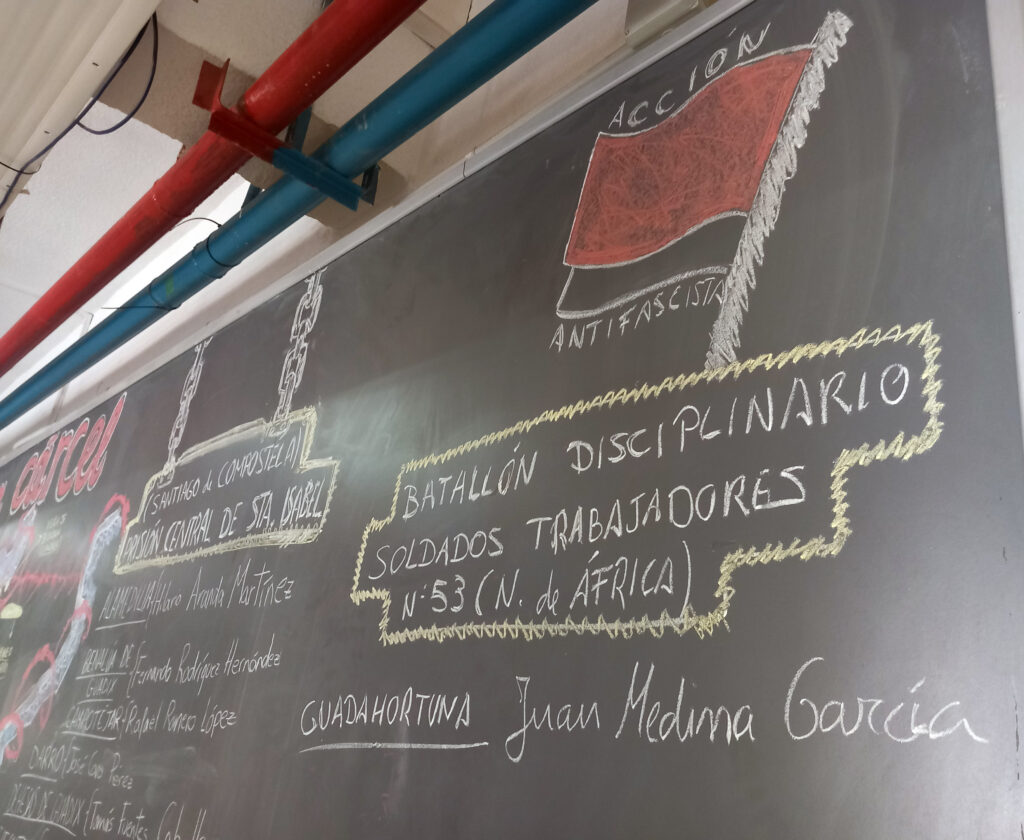 cárcel
(SANTIAGO de COMPOSTELA)
PRISIÓN CENTRAL DE STA. ISABEL
ALAMEDILLA Hilario Aranda Martínez
BENALUA DE GUADIX Fernando Rodríguez Hernández
CAMPOTEJAR Rafael Romero López
DARRO José Cobo Pérez
Tomás Fuentes
ACCIÓN
ANTIFASCISTA
BATALLÓN DISCIPLINARIO
SOLDADOS TRABAJADORES
Nº 53 (N. de ÁFRICA)
GUADAHORTUNA Juan Medina García